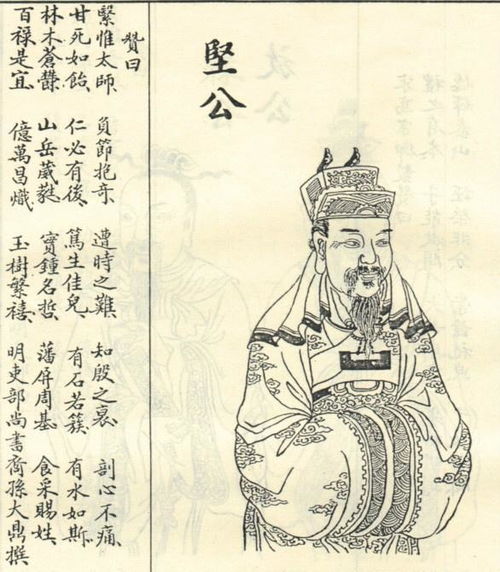 堅公
贊曰
繄惟太師、負節抱奇、遭時之難、知殷之衰、剖心不痛、
甘死如飴、仁必有後、篤生佳兒、有石若簇、有水如斯、
林木蒼欝、山岳葳蕤、實鐘名哲、藩屏周基、食采賜姓、
百祿是宜、億萬昌熾、玉樹繁禧、明吏部尚書裔孫大鼎撰